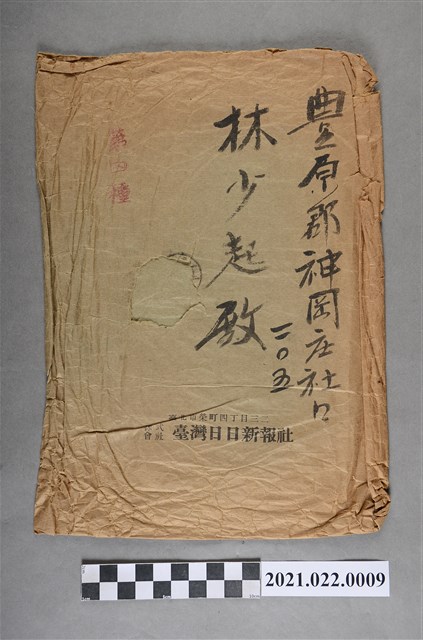 豊原郡神岡庄社口
一〇五
林少起殿
第四種
臺北市榮町四丁目三二
株式會社 臺灣日日新報社
2021.022.0009